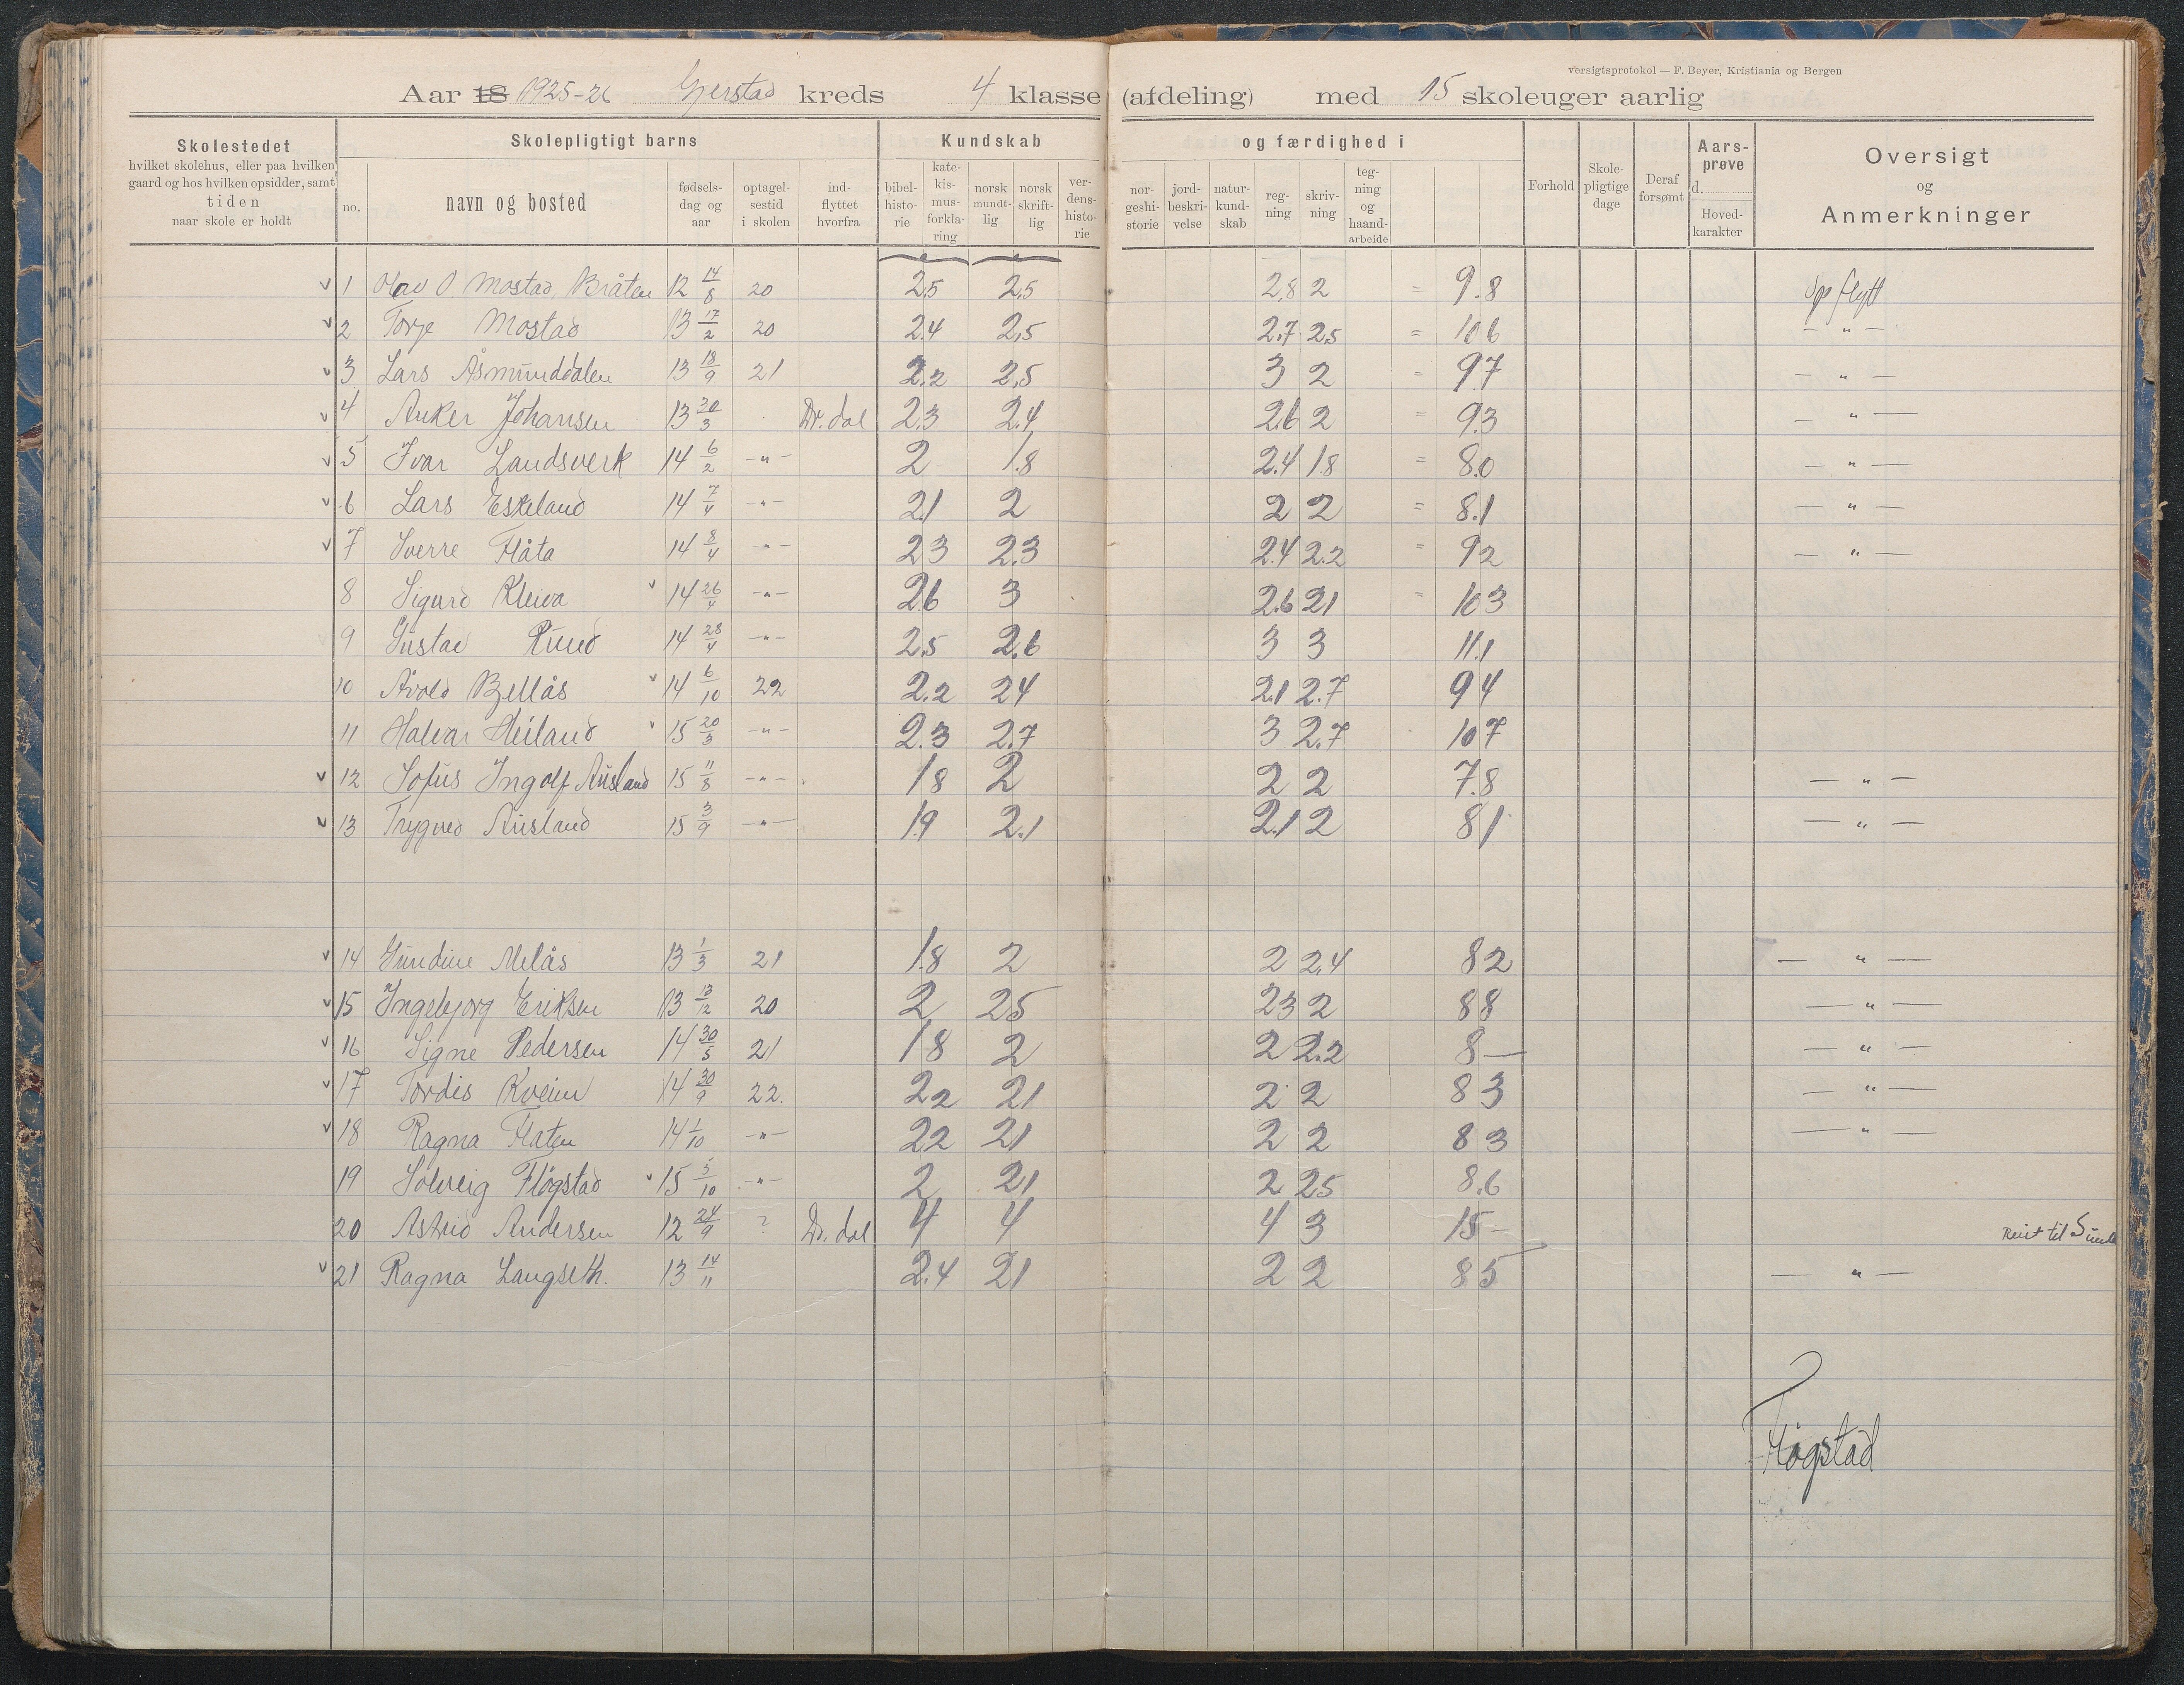 versigtsprotokol — F. Beyer, Kristiania og Bergen
Aar 18 1925-26 Gjerstad kreds 4 klasse (afdeling) med 15 skoleuger aarlig
Skolestedet
hvilket skolehus, eller paa hvilken
gaard og hos hvilken opsidder, samt
tiden
naar skole er holdt
Skolepligtigt barns
no.
navn og bosted
fødsels-
dag og
aar
optagel-
sestid
i skolen
ind-
flyttet
hvorfra
Kundskab
bibel-
histo-
rie
kate-
kis-
mus-
forkla-
ring
norsk
mundt-
lig
norsk
skrift-
lig
ver-
dens-
histo-
rie
og færdighed i
nor-
geshi-
storie
jord-
beskri-
velse
natur-
kund-
skab
reg-
ning
skriv-
ning
teg-
ning
og
haand-
arbeide
Forhold
Skole-
pligtige
dage
Deraf
forsømt
Aars-
prøve
d.
Hoved-
karakter
Oversigt
og
Anmerkninger
v 1 Olav O. Mostad, Bråten 12 14/8 20 2.5 2.5 2.8 2 = 9.8 Opflytt
v 2 Torje Mostad 13 17/2 20 2.4 2.5 2.7 2.5 = 10 6 — " —
v 3 Lars Åsmunddalen 13 18/9 21 2.2 2.5 3 2 = 9.7 — " —
v 4 Anker Johansen 13 30/3 Dr. dal 2.3 2.4 2.6 2 = 9.3 — " —
v 5 Ivar Landsverk 14 6/2 - " - 2 1.8 2.4 1.8 = 8.0 — " —
v 6 Lars Eskeland 14 7/4 - " - 2.1 2 2 2 = 8.1 — " —
v 7 Sverre Flåta 14 8/4 - " - 2 3 2.3 2.4 2.2 = 9 2 — " —
8 Sigurd Kleiva v 14 26/4 - " - 2 6 3 2.6 2 1 = 10 3
9 Gustav Ruud 14 28/4 - " - 2.5 2.6 3 3 11.1
10 Åvold Bjellås v 14 6/10 22 2.2 2 4 2.1 2.7 9 4
11 Halvar Heiland v 15 20/3 - " - 2.3 2.7 3 2.7 10 7
v 12 Sofus Ingolf Ausland 15 11/8 - " - 1 8 2 2 2 7.8 — " —
v 13 Trygve Ausland 15 3/9 - " - 1.9 2.1 2.1 2 8 1 — " —
v 14 Gundine Melås 13 1/3 21 1.8 2 2 2.4 8 2 — " —
v 15 Ingebjorg Eriksen 13 13/12 20 2 2 5 2 3 2 8 8 — " —
v 16 Signe Pedersen 14 30/5 21 1 8 2 2 2.2 8 — — " —
v 17 Tordis Kveim 14 30/9 22. 2 2 2 1 2 2 8 3 — " —
v 18 Ragna Flaten 14 1/10 - " - 2 2 2 1 2 2 8 3 — " —
19 Solveig Fløgstad v 15 5/10 - " - 2 2 1 2 2 5 8.6
20 Astrid Andersen 12 24/9 ? Dr. dal 4 4 4 3 15 — Reist til
v 21 Ragna Langseth. 13 14/11 2.4 2 1 2 2 8 5 — " —
Fløgstad